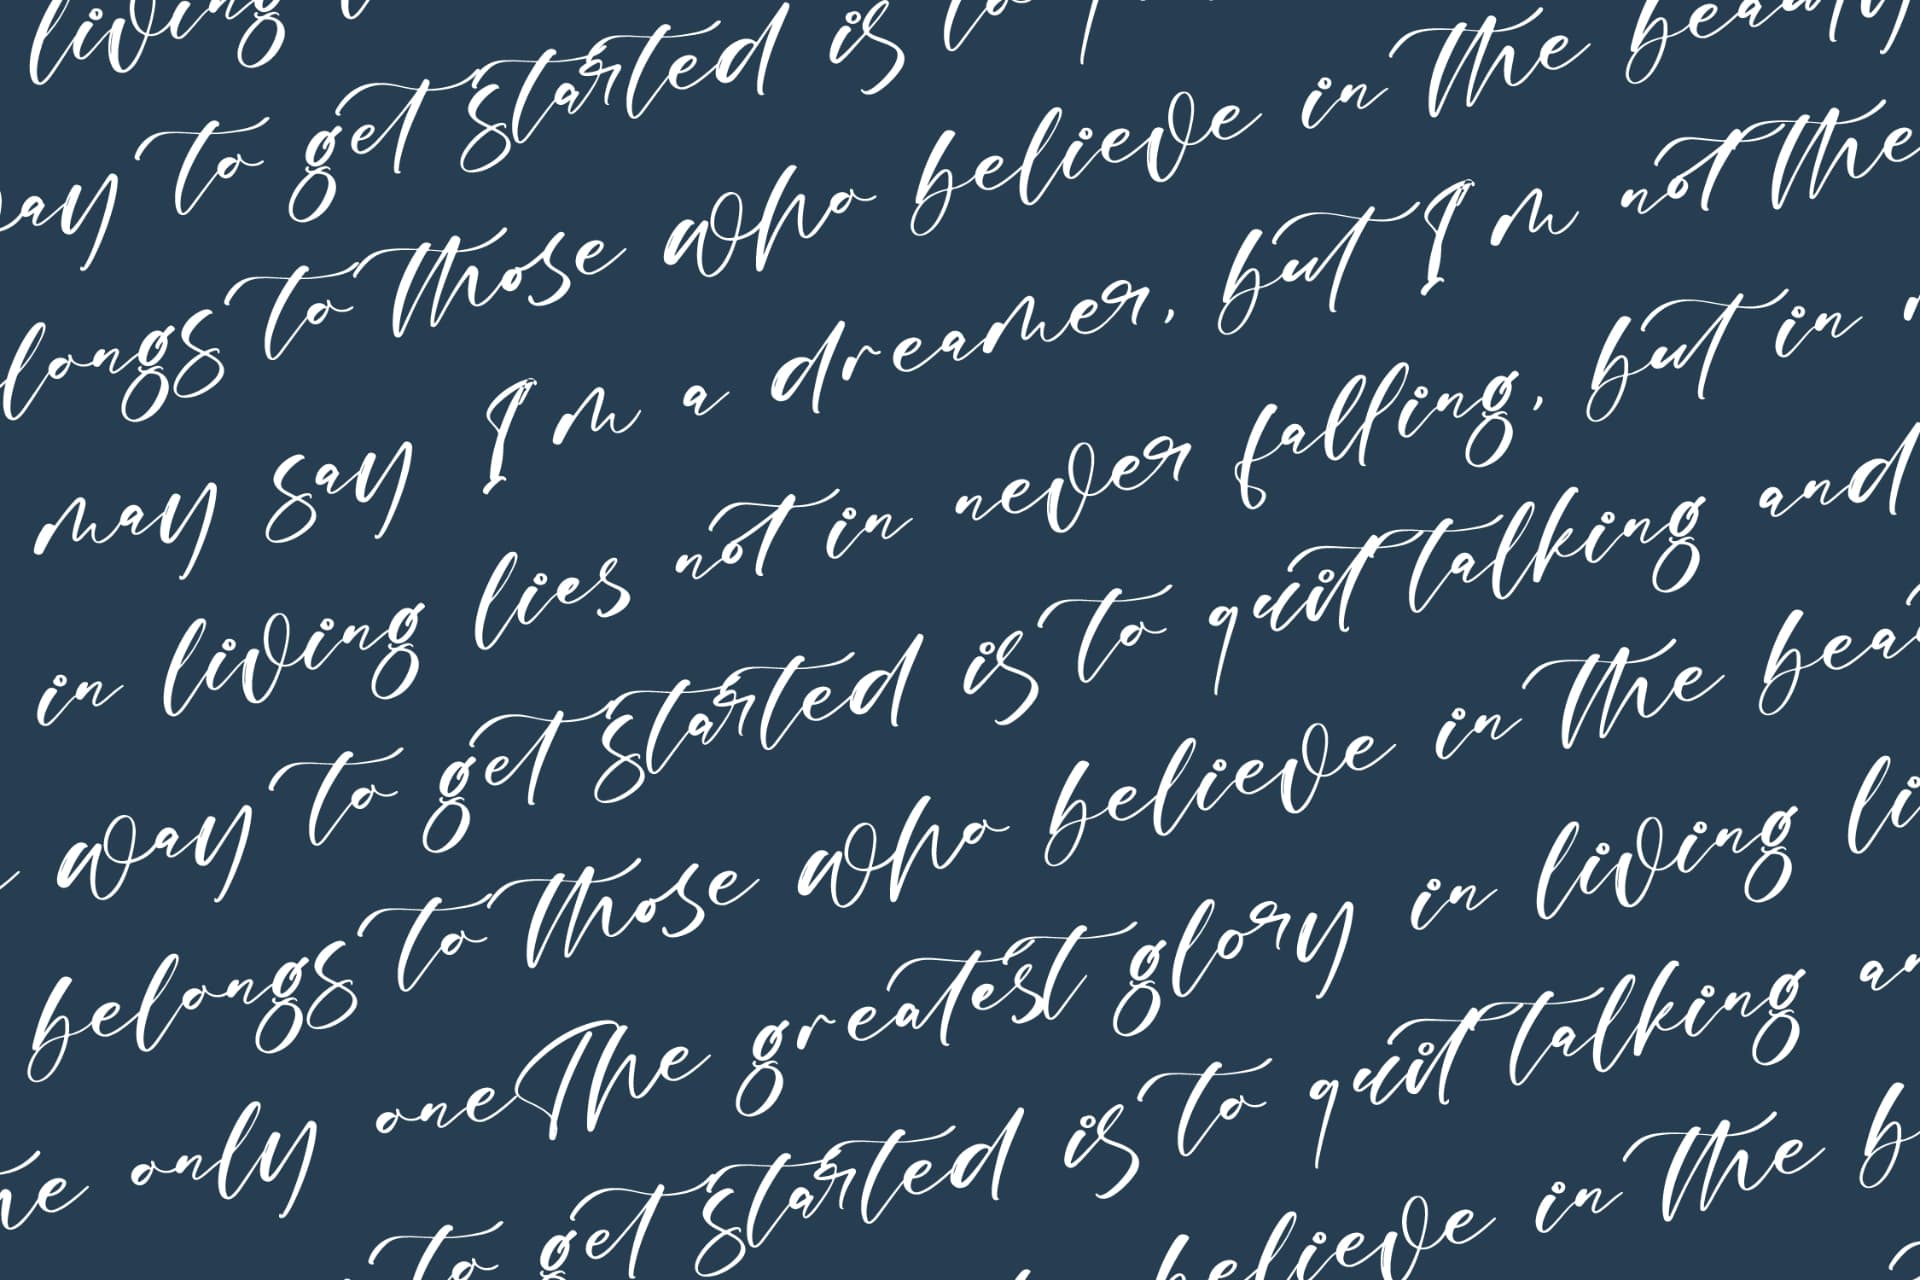 living
way to get started is to
longs to those who believe in the beauty
may say I'm a dreamer, but I'm not the
in living lies not in never falling, but in
way to get started is to quit talking and
belongs to those who believe in the beau
he only one The greatest glory in living li
to get started is to quit talking an
believe in the b